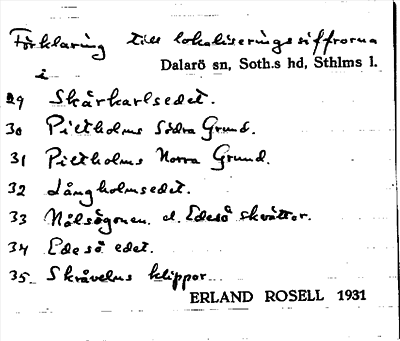 Förklaring till lokaliseringssiffrorna
i Dalarö sn, Soth.s hd, Sthlms l.
29 Skårkarlsedet.
30 Piltholms Södra Grund.
31 Piltholms Norra Grund.
32 Långholmsedet.
33 Nålsögonen el. Edesö skvättor.
34 Edesö edet.
35 Skråvelns klippor
ERLAND ROSELL 1931